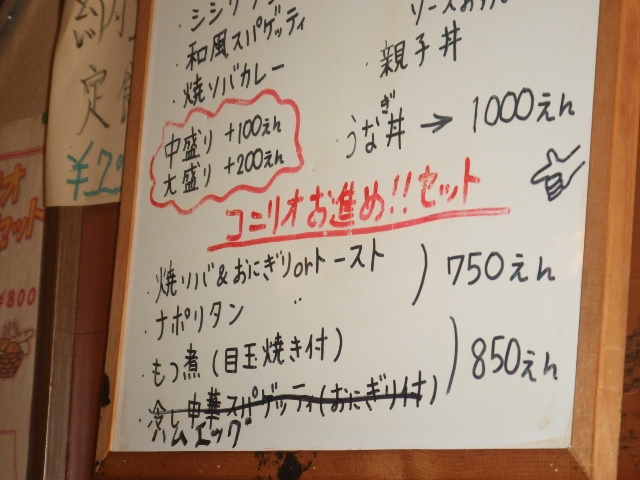 和風スパゲッティ
・焼ソバカレー
・親子丼
中盛り +100えん
大盛り +200えん
・うなぎ丼 → 1000えん
コニリオお進め!!セット
・焼ソバ&おにぎりorトースト
・ナポリタン 〃
) 750えん
・もつ煮(目玉焼き付)
・冷し中華スパゲッティ(おにぎり付)
ハムエッグ
) 850えん
定
セット
¥800